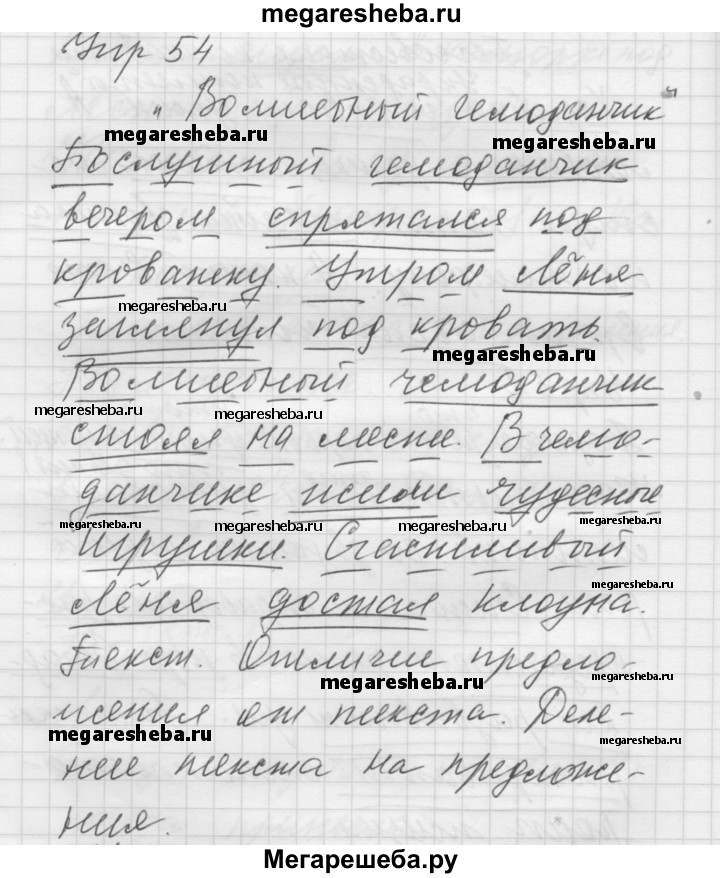 megaresheba.ru
Упр 54
„Волшебный чемоданчик"
megaresheba.ru megaresheba.ru
Послушный чемоданчик
вечером спрятался под
кроватку. Утром Лёня
megaresheba.ru
заглянул под кровать.
megaresheba.ru
Волшебный чемоданчик
megaresheba.ru megaresheba.ru
стоял на месте. В чемо-
данчике жили чудесные
megaresheba.ru megaresheba.ru megaresheba.ru megaresheba.ru
игрушки. Счастливый
megaresheba.ru
Лёня достал клоуна.
Текст. Отличие предло-
megaresheba.ru megaresheba.ru
жения от текста. Деле-
megaresheba.ru megaresheba.ru
ние текста на предложе-
ния.
Мегарешеба.ру